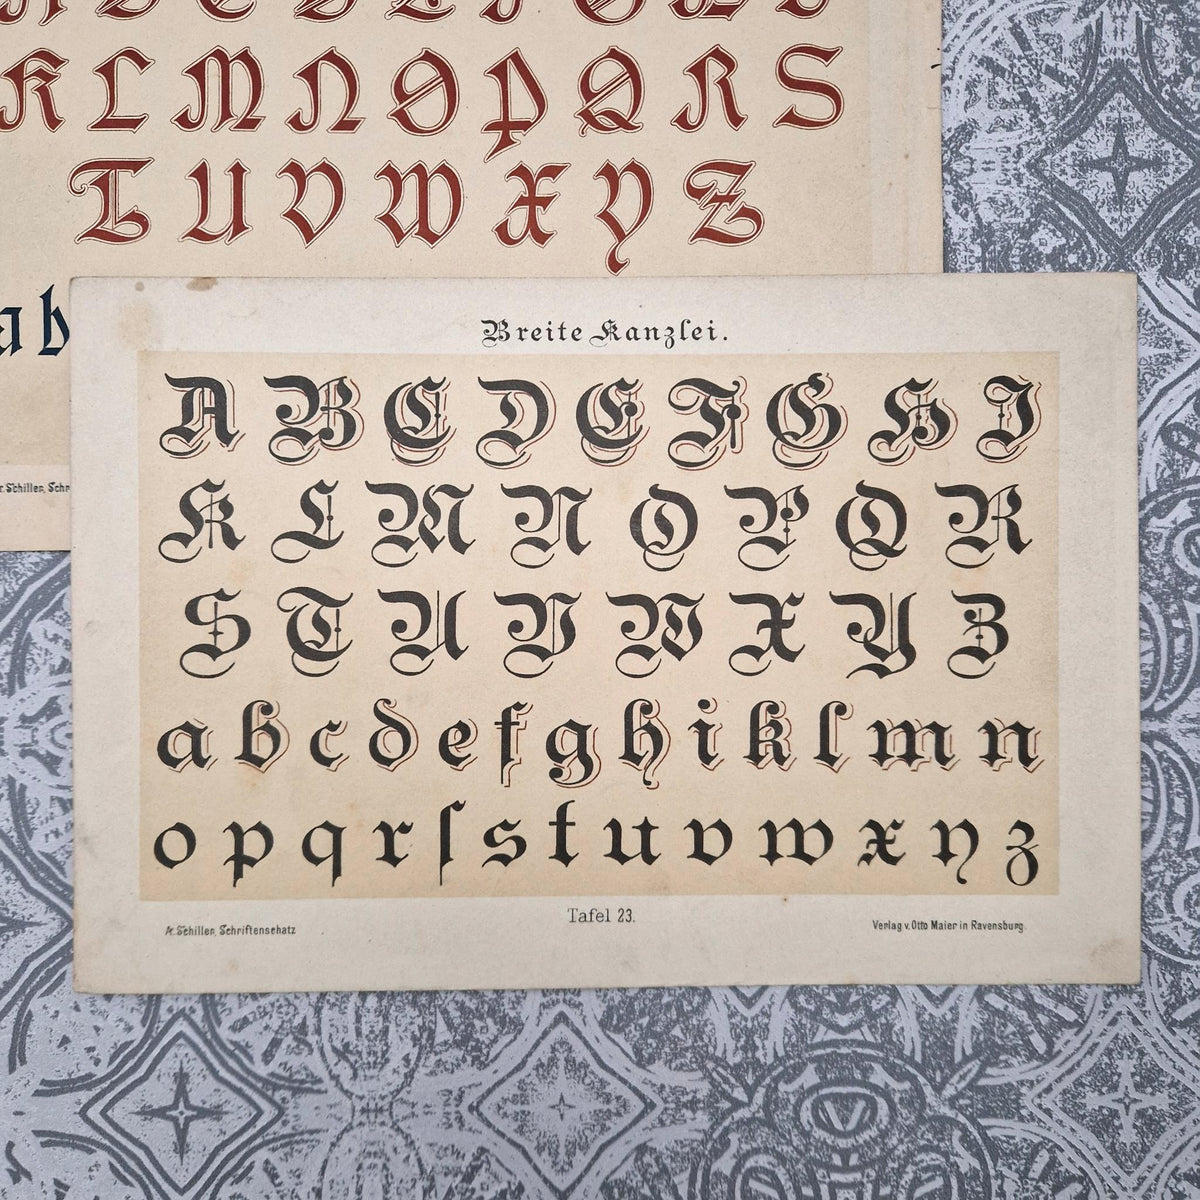 A B C D E F G H I
K L M N O P Q R S
T U V W X Y Z
a b
r. Schiller, Schr
Breite Kanzlei.
A B C D E F G H I
K L M N O P Q R
S T U V W X Y Z
a b c d e f g h i k l m n
o p q r ſ s t u v w x y z
Tafel 23.
A. Schiller, Schriftenschatz
Verlag v. Otto Maier in Ravensburg.